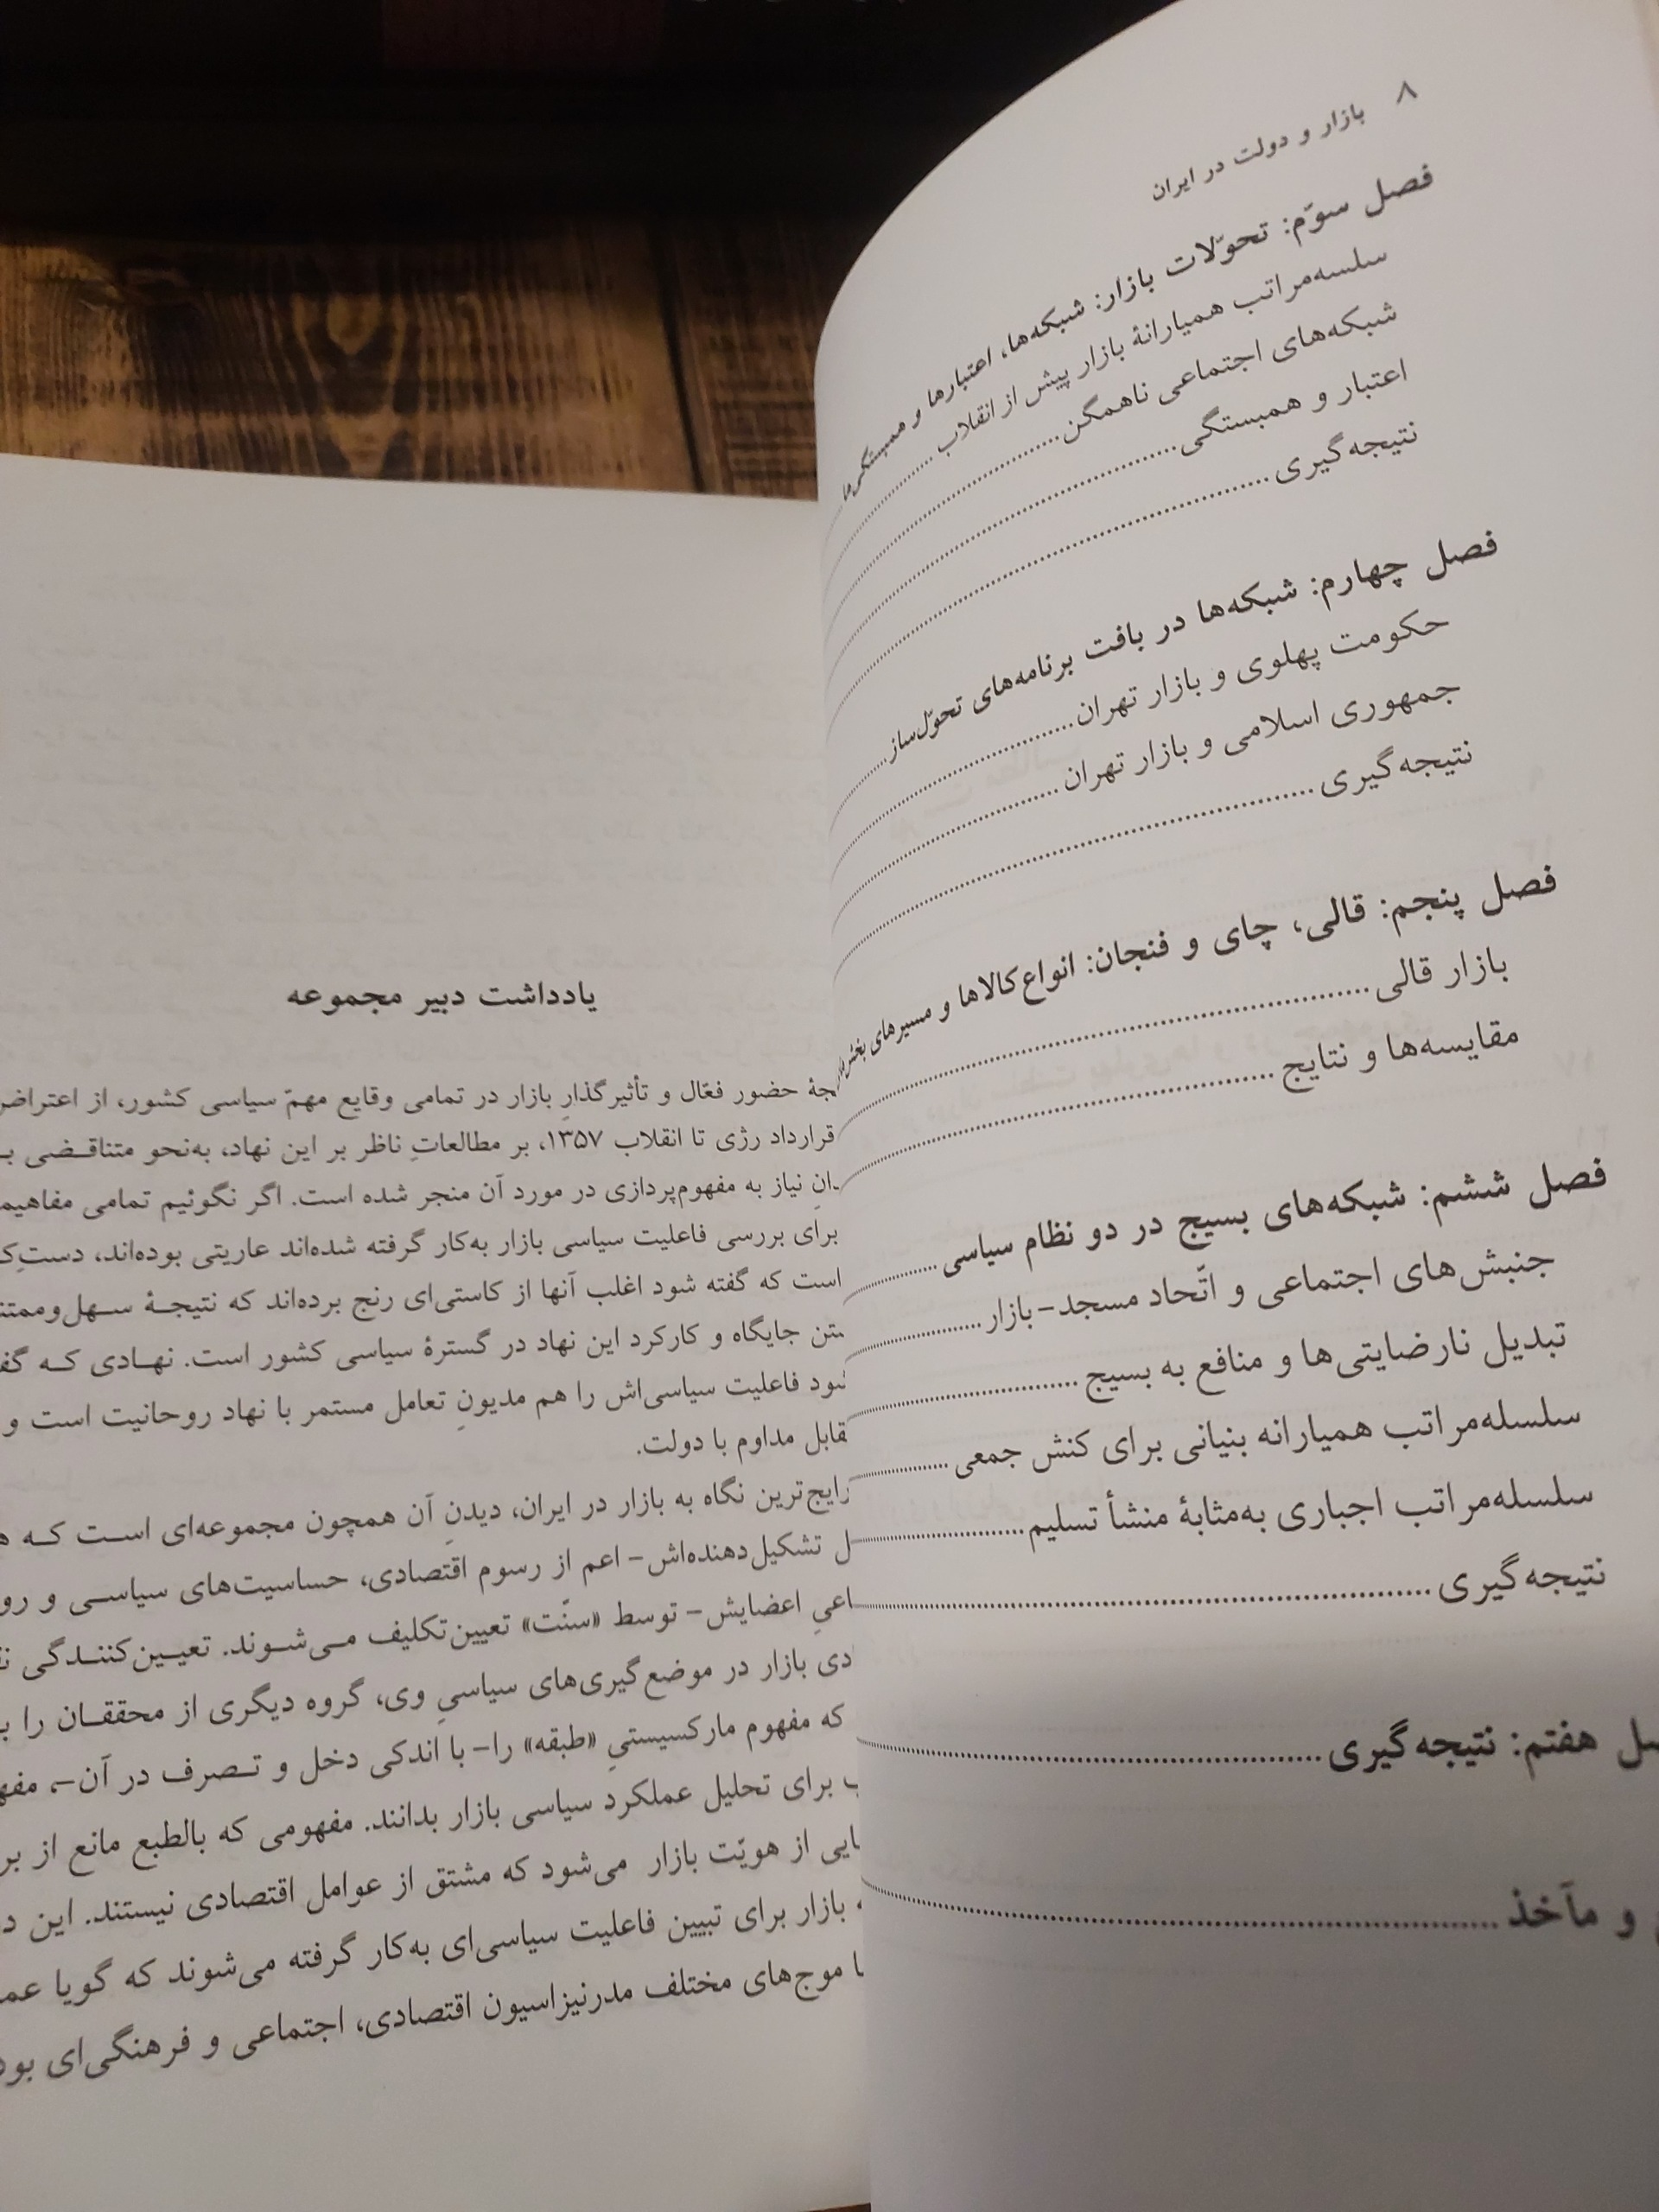 ۸ بازار و دولت در ایران
فصل سوّم: تحوّلات بازار: شبکه‌ها، اعتبارها و همبستگی‌ها
سلسه‌مراتب همیارانهٔ بازار پیش از انقلاب
شبکه‌های اجتماعی ناهمگن
اعتبار و همبستگی
نتیجه‌گیری
فصل چهارم: شبکه‌ها در بافت برنامه‌های تحوّل‌ساز
حکومت پهلوی و بازار تهران
جمهوری اسلامی و بازار تهران
نتیجه‌گیری
فصل پنجم: قالی، چای و فنجان: انواع کالاها و مسیرهای
بازار قالی
مقایسه‌ها و نتایج
فصل ششم: شبکه‌های بسیج در دو نظام سیاسی
جنبش‌های اجتماعی و اتّحاد مسجد-بازار
تبدیل نارضایتی‌ها و منافع به بسیج
سلسله‌مراتب همیارانه بنیانی برای کنش جمعی
سلسله‌مراتب اجباری به‌مثابهٔ منشأ تسلیم
نتیجه‌گیری
هفتم: نتیجه‌گیری
و مآخذ
یادداشت دبیر مجموعه
حضور فعّال و تأثیرگذارِ بازار در تمامی وقایع مهمّ سیاسی کشور، از
قرارداد رژی تا انقلاب ۱۳۵۷، بر مطالعاتِ ناظر بر این نهاد، به‌نحو متناقضی
نیاز به مفهوم‌پردازی در مورد آن منجر شده است. اگر نگوئیم تمامی
برای بررسی فاعلیت سیاسی بازار به‌کار گرفته شده‌اند عاریتی بوده‌اند،
است که گفته شود اغلب آنها از کاستی‌ای رنج برده‌اند که نتیجهٔ
جایگاه و کارکرد این نهاد در گسترهٔ سیاسی کشور است. نهادی که
فاعلیت سیاسی‌اش را هم مدیونِ تعامل مستمر با نهاد روحانیت است و
مداوم با دولت.
رایج‌ترین نگاه به بازار در ایران، دیدنِ آن همچون مجموعه‌ای است که
تشکیل‌دهنده‌اش- اعم از رسوم اقتصادی، حساسیت‌های سیاسی و
اعضایش- توسط «سنّت» تعیین‌تکلیف می‌شوند. تعیین‌کنندگی
بازار در موضع‌گیری‌های سیاسیِ وی، گروه دیگری از محققان را
که مفهوم مارکسیستیِ «طبقه» را- با اندکی دخل و تصرف در آن-،
برای تحلیل عملکرد سیاسی بازار بدانند. مفهومی که بالطبع مانع از
از هویّت بازار می‌شود که مشتق از عوامل اقتصادی نیستند. این
بازار برای تبیین فاعلیت سیاسی‌ای به‌کار گرفته می‌شوند که گویا
موج‌های مختلف مدرنیزاسیون اقتصادی، اجتماعی و فرهنگی‌ای